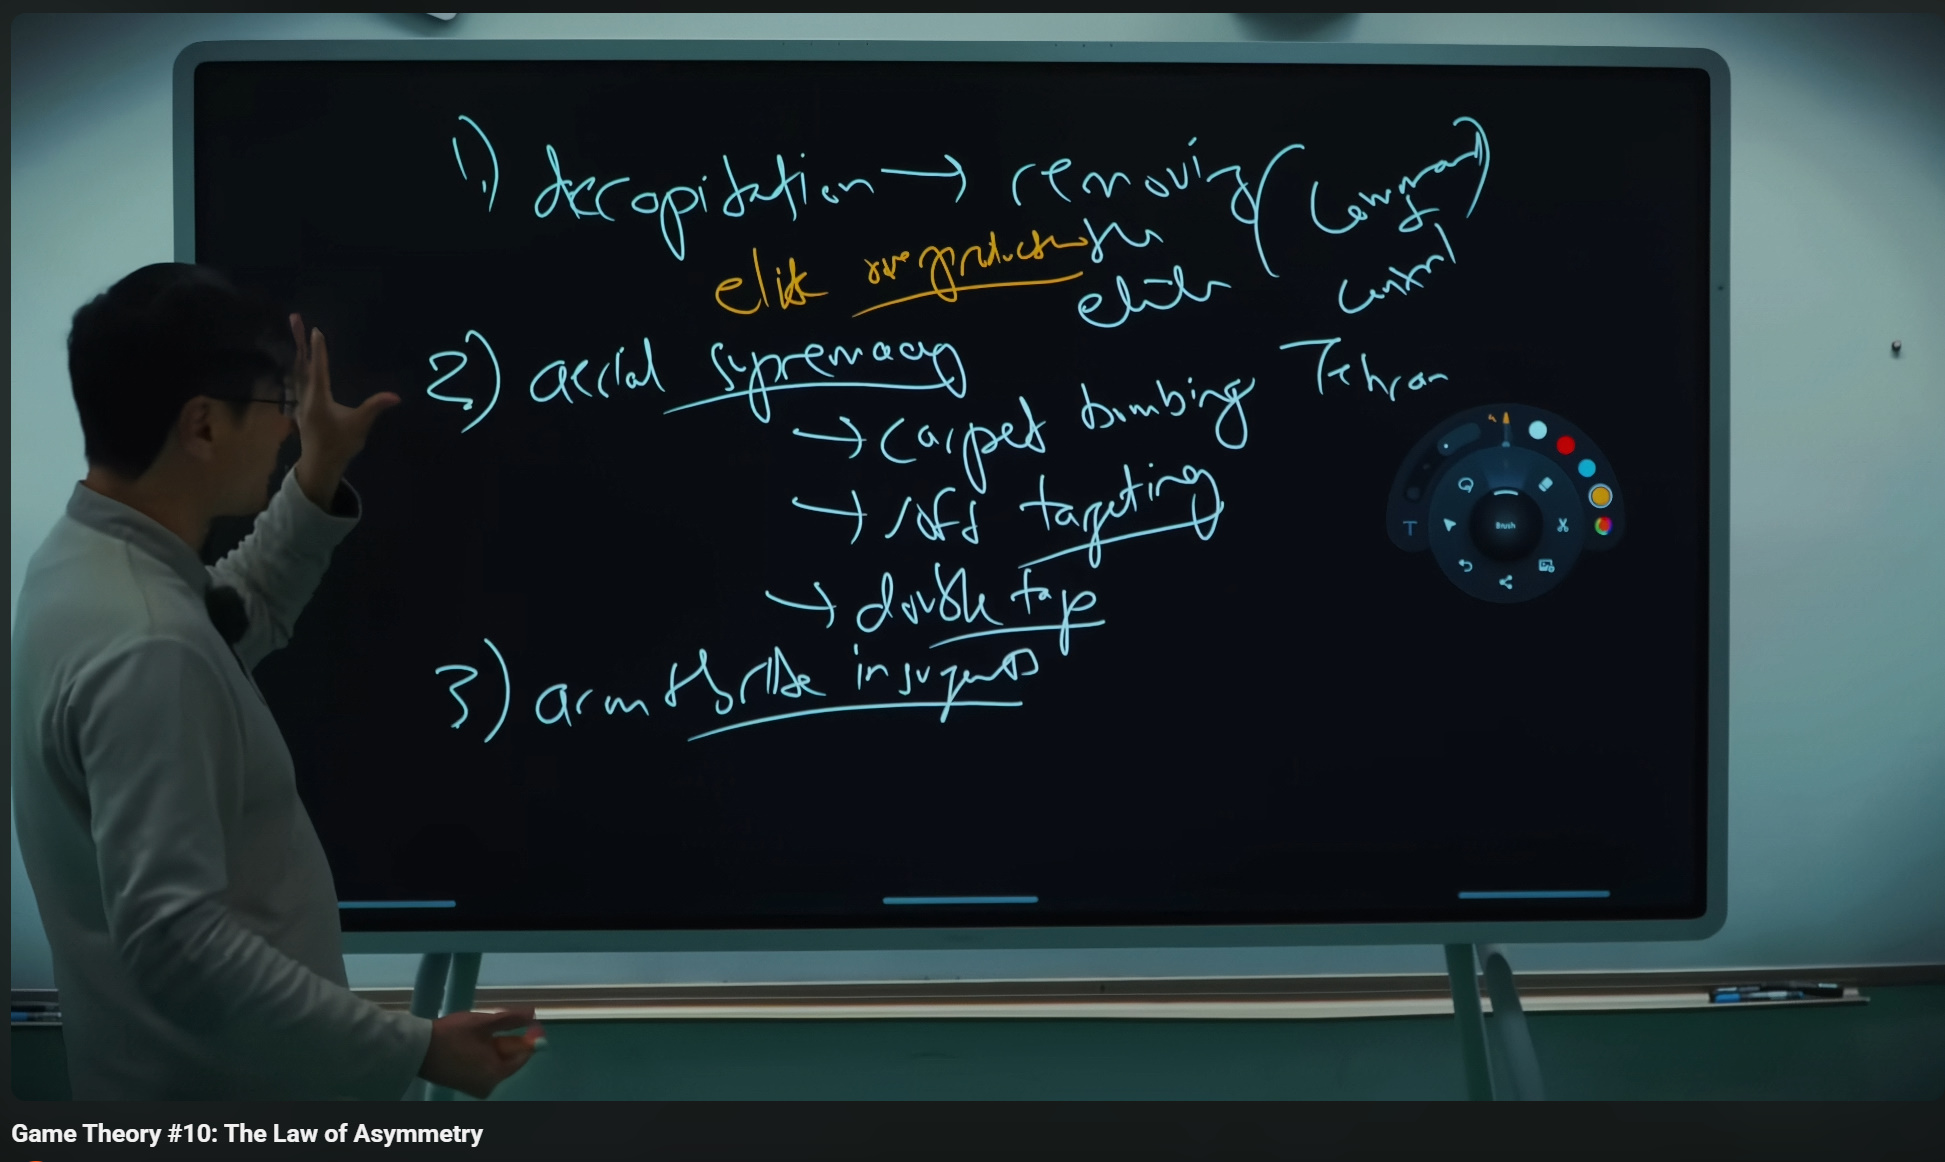 1) decapitation → removing (Command
the & 
elite control
elite overproduction
2) aerial supremacy
→ carpet bombing Tehran
→ soft targeting
→ double tap
3) arm ethnic insurgents
T
Brush
Game Theory #10: The Law of Asymmetry